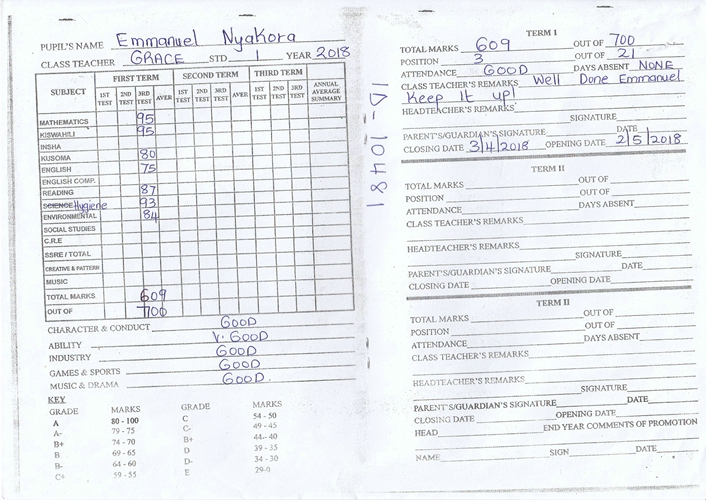 PUPIL'S NAME Emmanuel Nyakora
CLASS TEACHER GRACE STD 1 YEAR 2018
SUBJECT FIRST TERM SECOND TERM THIRD TERM ANNUAL AVERAGE SUMMARY
1ST TEST 2ND TEST 3RD TEST AVER 1ST TEST 2ND TEST 3RD TEST AVER 1ST TEST 2ND TEST 3RD TEST
MATHEMATICS 95
KISWAHILI 95
INSHA
KUSOMA 80
ENGLISH 75
ENGLISH COMP.
READING 87
SCIENCE Hygiene 93
ENVIRONMENTAL 84
SOCIAL STUDIES
C.R.E
SSRE / TOTAL
CREATIVE & PATTERN
MUSIC
TOTAL MARKS 609
OUT OF 700
CHARACTER & CONDUCT GOOD
ABILITY V. GOOD
INDUSTRY GOOD
GAMES & SPORTS GOOD
MUSIC & DRAMA GOOD.
KEY
GRADE MARKS GRADE MARKS
A 80 - 100 C 54 - 50
A- 79 - 75 C- 49 - 45
B+ 74 - 70 B+ 44 - 40
B 69 - 65 D 39 - 35
B- 64 - 60 D- 34 - 30
C+ 59 - 55 E 29-0
ID-10481
TERM I
TOTAL MARKS 609 OUT OF 700
POSITION 3 OUT OF 21
ATTENDANCE GOOD DAYS ABSENT NONE
CLASS TEACHER'S REMARKS Well Done Emmanuel
Keep It up!
HEADTEACHER'S REMARKS
SIGNATURE
PARENT'S/GUARDIAN'S SIGNATURE DATE
CLOSING DATE 3/4/2018 OPENING DATE 2/5/2018
TERM II
TOTAL MARKS OUT OF
POSITION OUT OF
ATTENDANCE DAYS ABSENT
CLASS TEACHER'S REMARKS
HEADTEACHER'S REMARKS
SIGNATURE
PARENT'S/GUARDIAN'S SIGNATURE DATE
CLOSING DATE OPENING DATE
TERM II
TOTAL MARKS OUT OF
POSITION OUT OF
ATTENDANCE DAYS ABSENT
CLASS TEACHER'S REMARKS
HEADTEACHER'S REMARKS
SIGNATURE
PARENT'S/GUARDIAN'S SIGNATURE DATE
CLOSING DATE OPENING DATE
HEAD END YEAR COMMENTS OF PROMOTION
NAME SIGN DATE